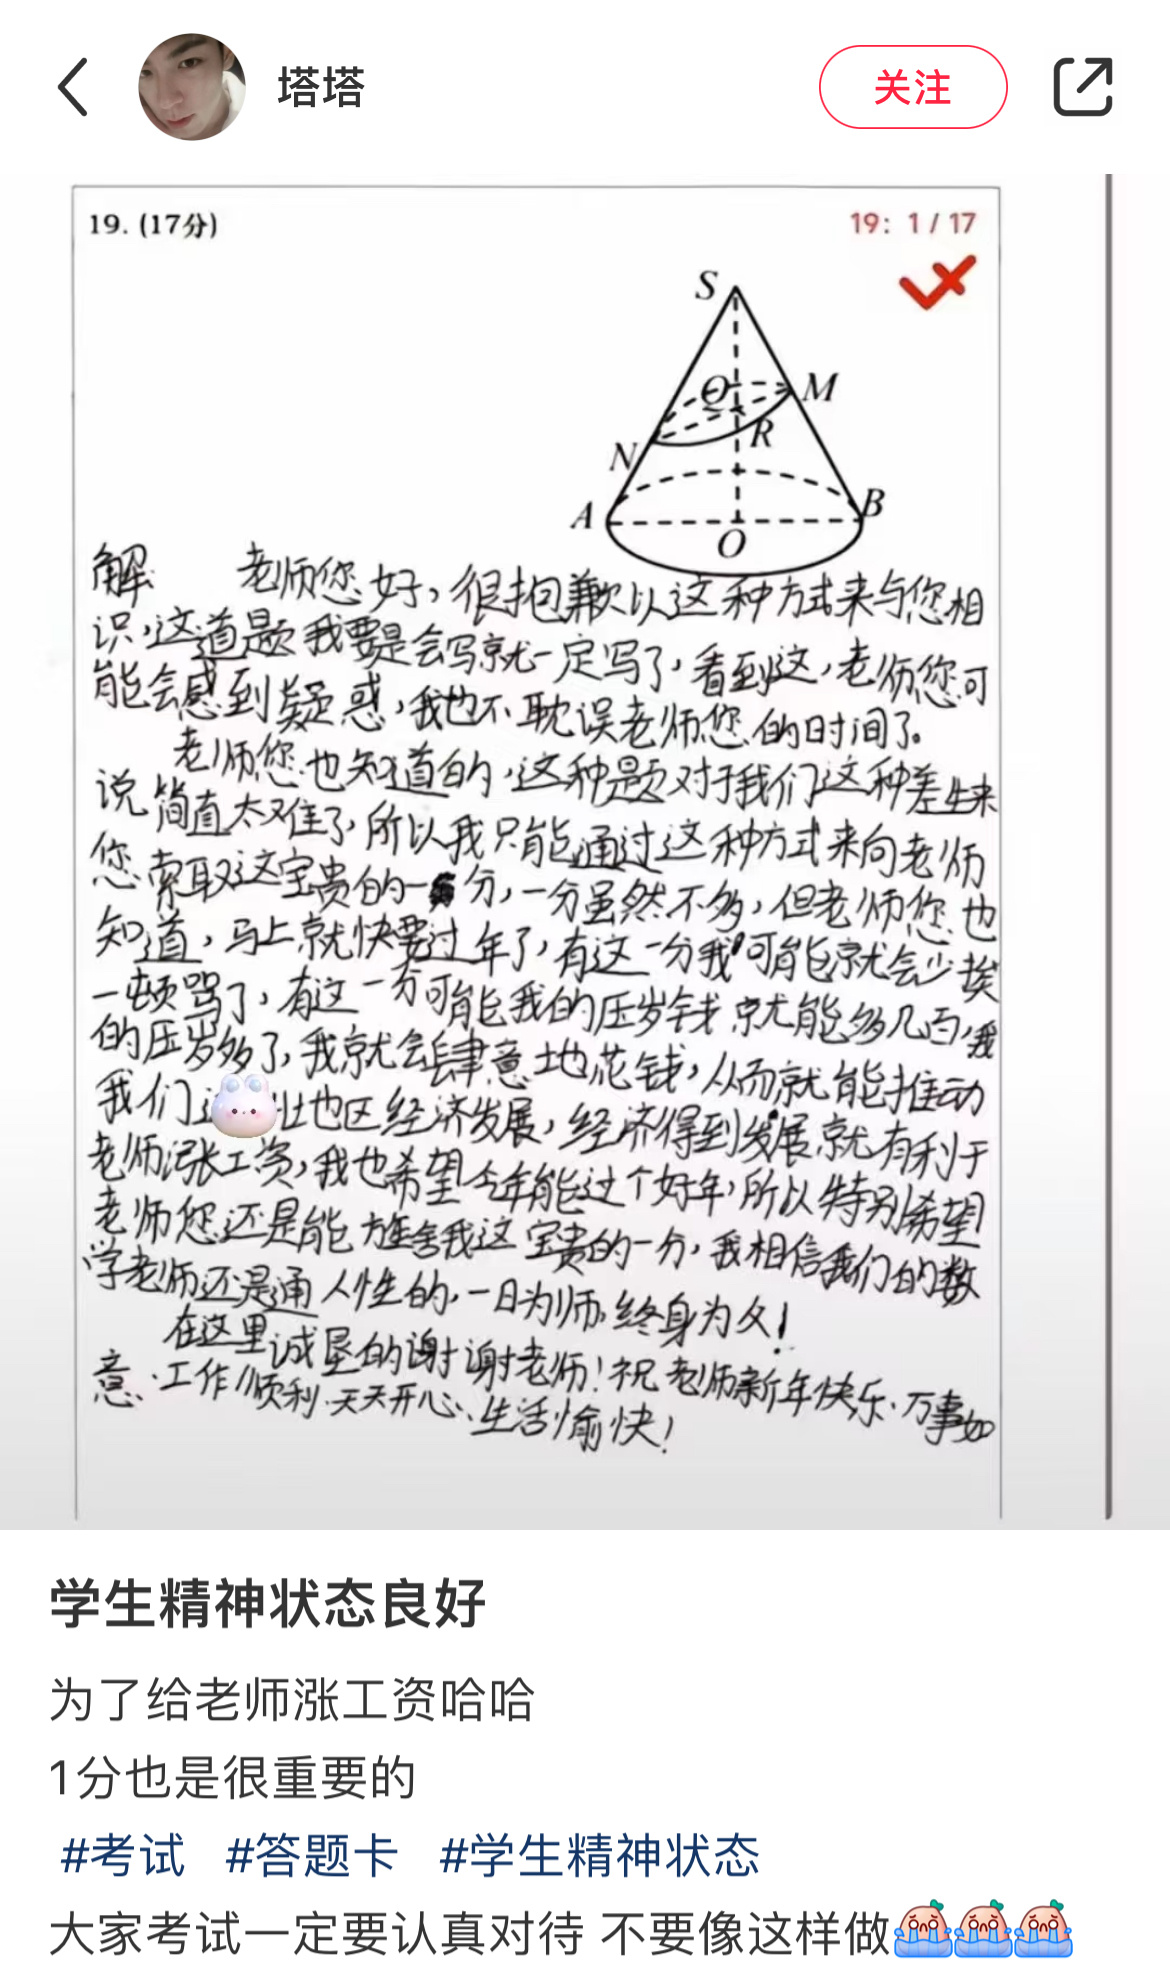 塔塔
关注
19. (17分)
19: 1 / 17
S
Q
M
R
N
A
B
O
解: 老师您好,很抱歉以这种方式来与您相
识,这道题我要是会写就一定写了,看到这,老师您可
能会感到疑惑,我也不耽误老师您的时间了。
老师您也知道的,这种题对于我们这种差生来
说简直太难了,所以我只能通过这种方式来向老师
您索取这宝贵的一分,一分虽然不多,但老师您也
知道,马上就快要过年了,有这一分我可能就会少挨
一顿骂了,有这一分可能我的压岁钱就能多几百,我
的压岁多了,我就会肆意地花钱,从而就能推动
我们这 地区经济发展,经济得到发展就有利于
老师涨工资,我也希望今年能过个好年,所以特别希望
老师您还是能施舍我这宝贵的一分,我相信我们的数
学老师还是通人性的,一日为师,终身为父!
在这里诚垦的谢谢老师!祝老师新年快乐.万事如
意.工作顺利.天天开心.生活愉快!
学生精神状态良好
为了给老师涨工资哈哈
1分也是很重要的
#考试 #答题卡 #学生精神状态
大家考试一定要认真对待 不要像这样做